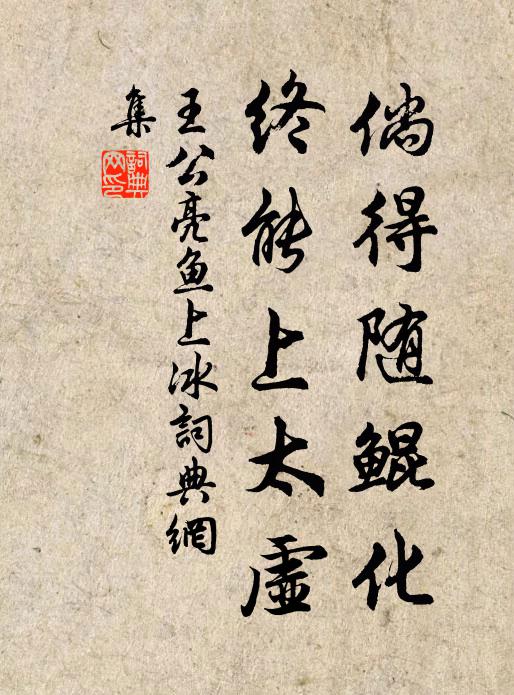 倘得随鲲化
终能上太虚
王公亮鱼上冰詞典網
集
詞典
网印